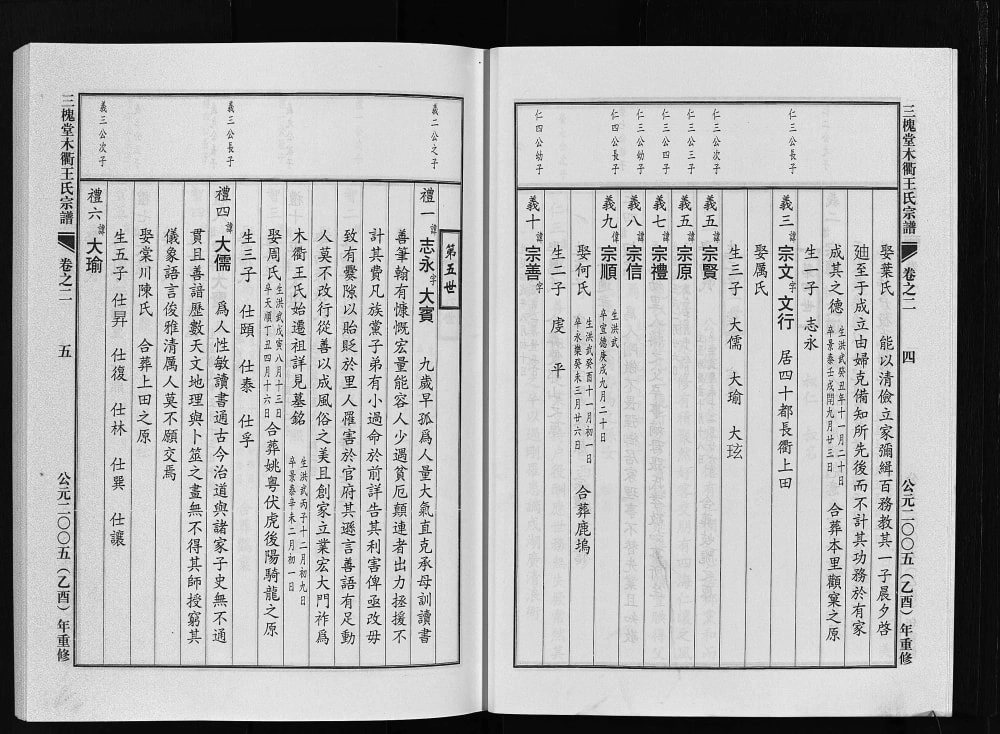 三槐堂木衢王氏宗譜 卷之二 四 公元二〇〇五（乙酉）年重修
娶葉氏 能以清儉立家彌緝百務教其一子晨夕啓
廸至于成立由婦克備知所先後而不計其功務於有家
成其之德 生洪武癸丑年十一月二十日 卒景泰壬戌閏九月廿三日 合葬本里觀窠之原
生一子 志永
仁三公長子
義三 諱 宗文 字 文行 居四十都長衢上田
娶厲氏
生三子 大儒 大瑜 大玹
仁三公次子
義五 諱 宗賢
仁三公三子
義五 諱 宗原
仁三公四子
義七 諱 宗禮
仁三公幼子
義八 諱 宗信
仁四公長子
義九 諱 宗順 生洪武 卒宣德庚戌九月二十日
娶何氏 生洪武癸酉十一月初一日 卒永樂癸未三月廿六日 合葬鹿塢
生二子 虔 平
仁四公幼子
義十 諱 宗善 字
第五世
義二公之子
禮一 諱 志永 字 大賓 九歲早孤爲人量大氣直克承母訓讀書
善筆翰有慷慨宏量能容人少遇貧厄顛連者出力拯援不
計其費凡族黨子弟有小過命於前詳告其利害俾亟改毋
致有釁隙以貽貶於里人罹害於官府其遜言善語有足動
人莫不改行從善以成風俗之美且創家立業宏大門祚爲
木衢王氏始遷祖詳見墓銘 生洪武丙子十二月初九日 卒景泰辛未二月初一日
娶周氏 生洪武戊寅八月十三日 卒天順丁丑四月十六日 合葬姚粤伏虎後陽騎龍之原
生三子 仕頤 仕泰 仕孚
義三公長子
禮四 諱 大儒 爲人性敏讀書通古今治道與諸家子史無不通
貫且善諳歷數天文地理與卜筮之書無不得其師授窮其
儀象語言俊雅清厲人莫不願交焉
娶棠川陳氏 合葬上田之原
生五子 仕昇 仕復 仕林 仕巽 仕讓
義三公次子
禮六 諱 大瑜
三槐堂木衢王氏宗譜 卷之二 五 公元二〇〇五（乙酉）年重修